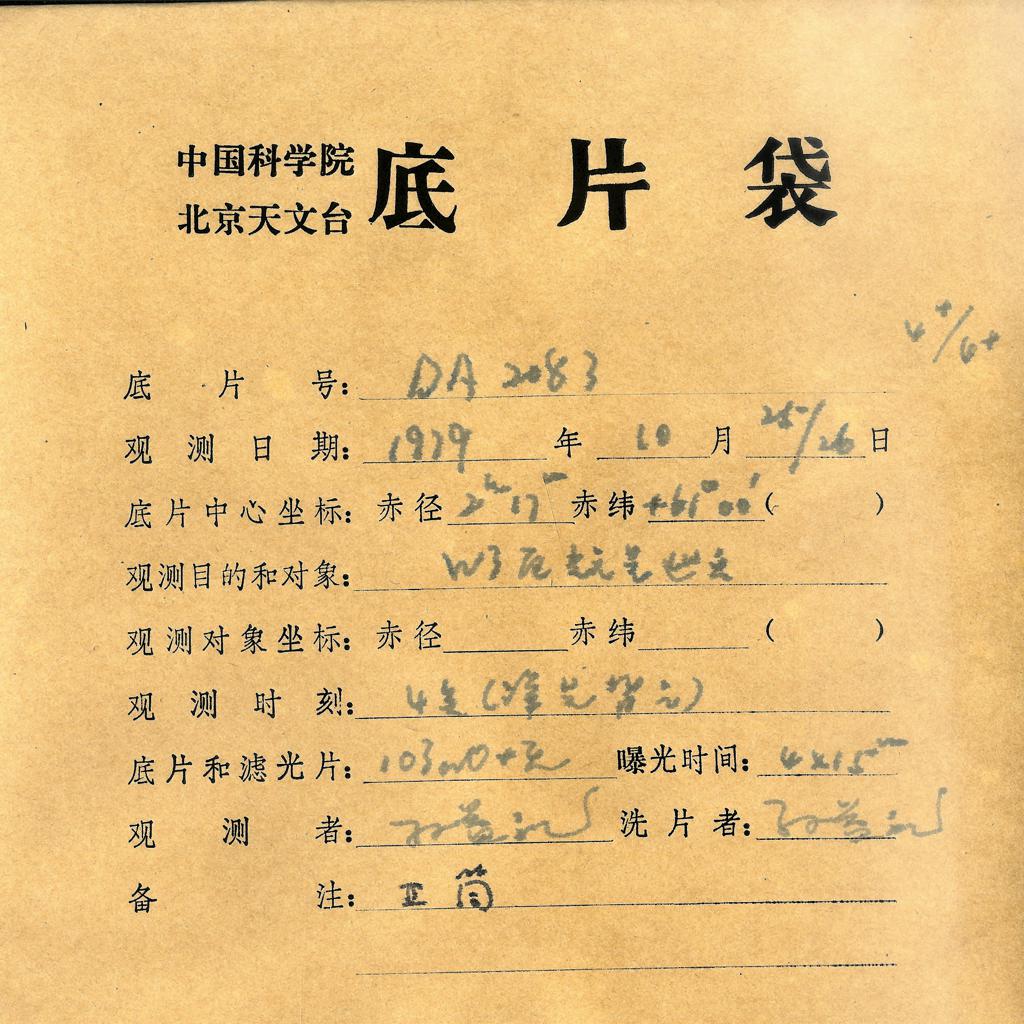 中国科学院
北京天文台
底片袋
4+/6+
底片号: DA 2083
观测日期: 1979 年 10 月 25/26 日
底片中心坐标: 赤径 2ʰ 17ᵐ 赤纬 +61° 00′ ( )
观测目的和对象: W3
观测对象坐标: 赤径 赤纬 ( )
观测时刻: 4
底片和滤光片: 103aO+无 曝光时间: 4×15ᵐ
观测者: 洗片者:
备注: II 筒